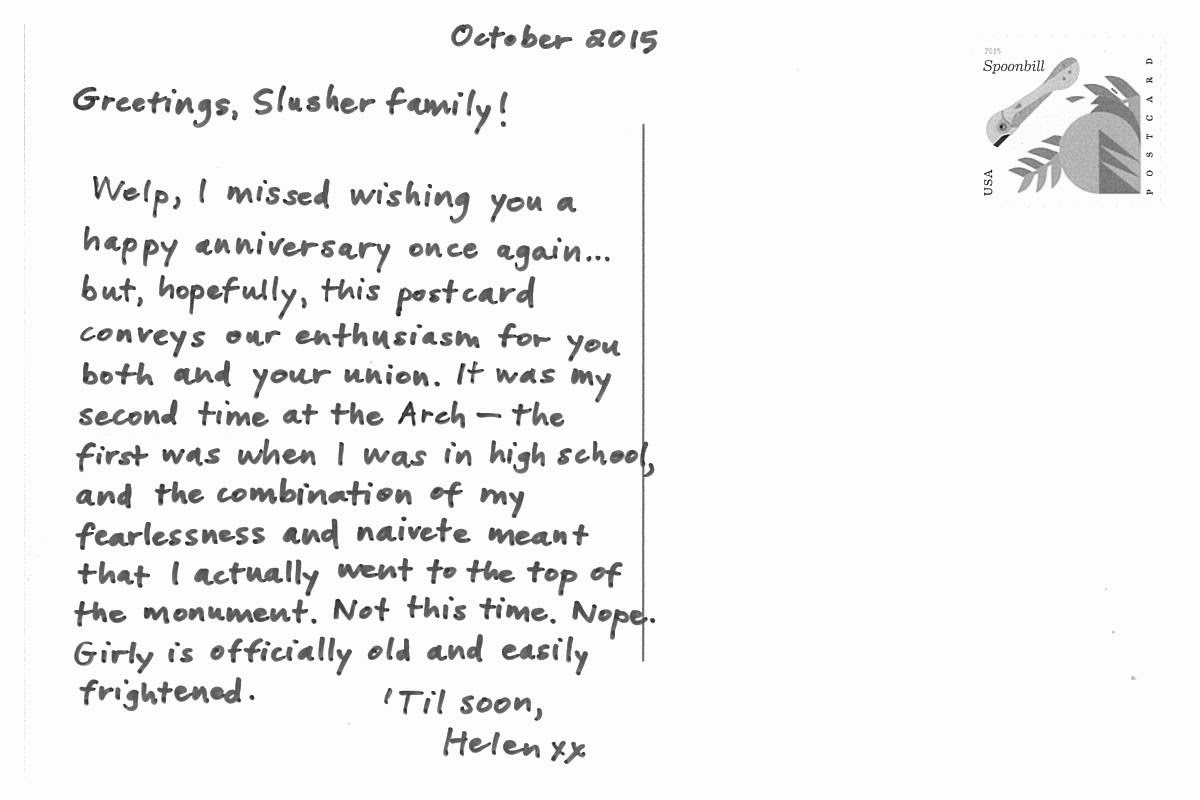 October 2015
2015
Spoonbill
USA
POSTCARD
Greetings, Slusher family!
Welp, I missed wishing you a
happy anniversary once again...
but, hopefully, this postcard
conveys our enthusiasm for you
both and your union. It was my
second time at the Arch — the
first was when I was in high school,
and the combination of my
fearlessness and naivete meant
that I actually went to the top of
the monument. Not this time. Nope.
Girly is officially old and easily
frightened.
'Til soon,
Helen xx